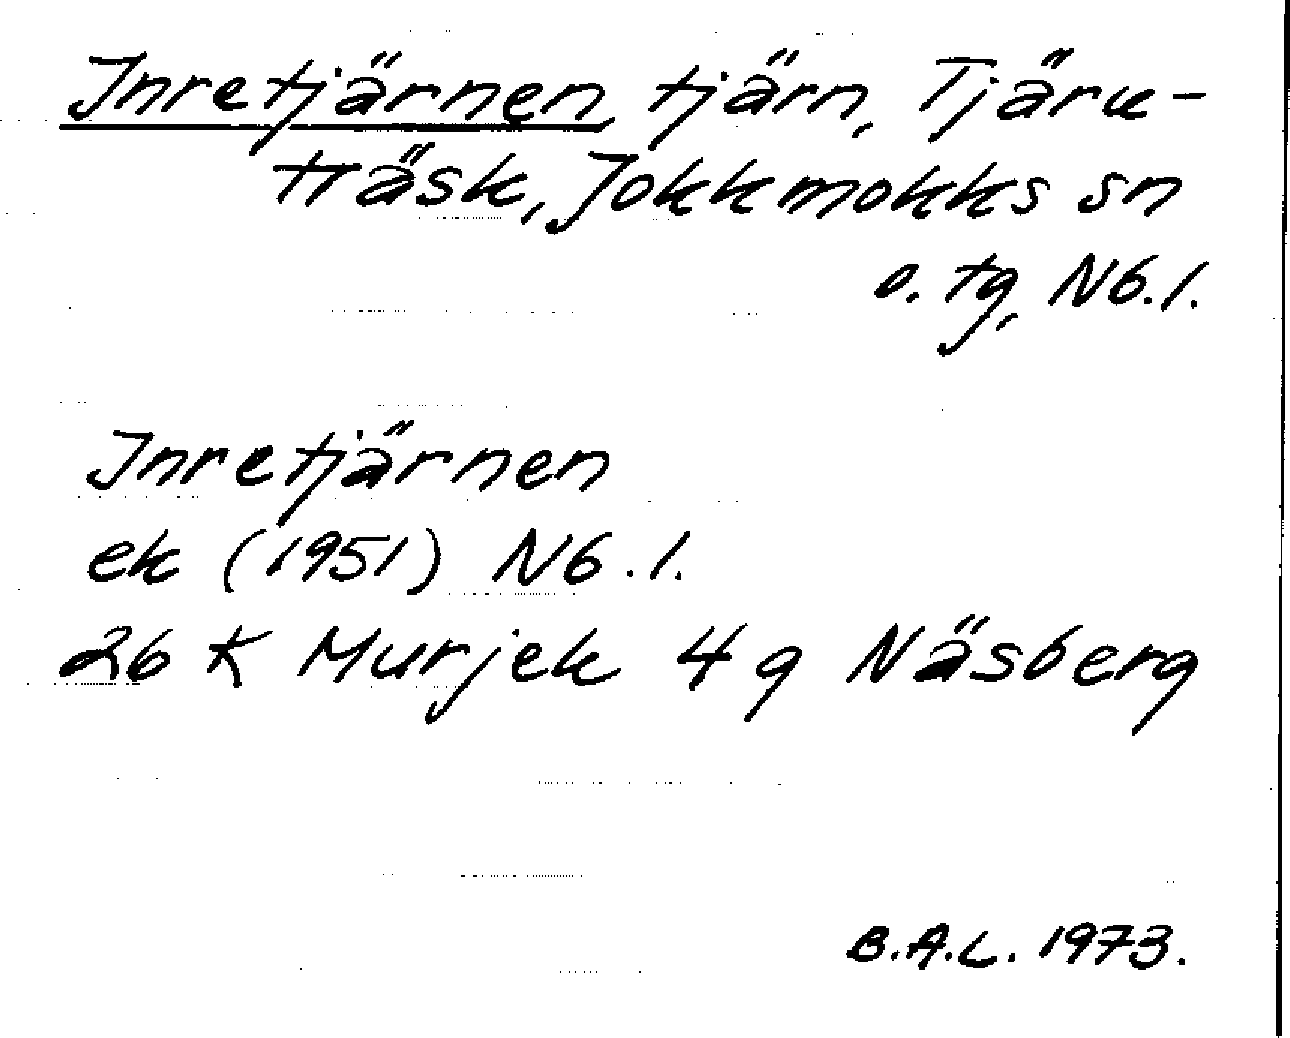 Inretjärnen, tjärn, Tjäru-
träsk, Jokkmokks sn
o. tg, Nb.l.
Inretjärnen
ek (1951) Nb.l.
26 K Murjek 4 g Näsberg
B.A.L. 1973.